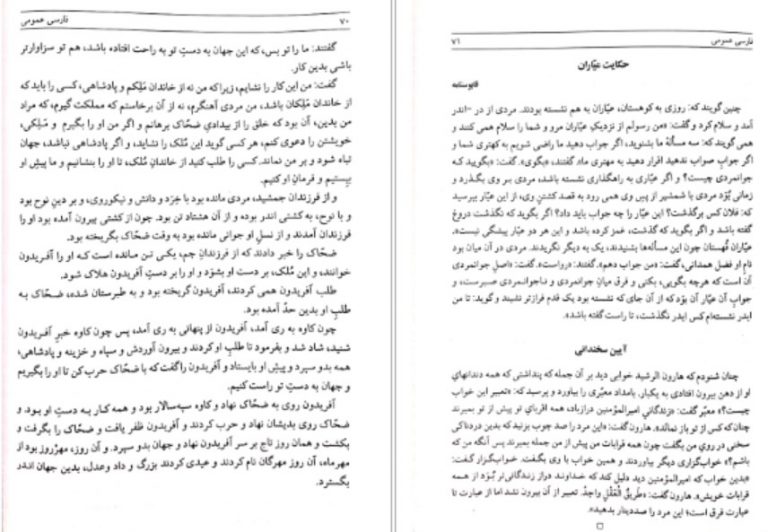 ۷۰ فارسی عمومی
گفتند: ما را تو بس، که این جهان به دستِ تو به راحت افتاده باشد، هم تو سزاوارتر
باشی بدین کار.
گفت: من این کار را نشایم، زیرا که من نه از خاندان مَلِکم و پادشاهی، کسی را باید که
از خاندان مَلِکان باشد، من مردی آهنگرم، نه از آن برخاستم که مملکت گیرم، که مراد
من بدین، آن بود که خلق را از بیدادیِ ضحّاک برهانم و اگر من او را بگیرم و مَلِکی،
خویشتن را دعوی کنم، هر کسی گوید این مُلک را نشاید، و اگر پادشاهی نباشد، جهان
تباه شود و بر من نماند. کسی را طلب کنید از خاندانِ مُلک، تا او را بنشانیم و ما پیشِ او
بیستیم و فرمانِ او کنیم.
و از فرزندان جمشید، مردی مانده بود با خِرَد و دانش و نیکوروی، و بر دینِ نوح بود
و با نوح، به کشتی اندر بوده و از آن هشتاد تن بود. چون از کشتی بیرون آمده بود او را
فرزندان آمدند و از نسلِ او جوانی مانده بود به وقت ضحّاک بگریخته بود.
ضحّاک را خبر دادند که از فرزندانِ جم، یکی تن مانده است که او را آفریدون
خوانند، و این مُلک، بر دست او بشوَد و او را بر دستِ آفریدون هلاک شود.
طلب آفریدون همی کردند، آفریدون گریخته بود و به طبرستان شده، ضحّاک به
طلبِ او بدین حدّ آمده بود.
چون کاوه به ری آمد، آفریدون از پنهانی به ری آمد، پس چون کاوه خبرِ آفریدون
شنید، شاد شد و بفرمود تا طلبِ او کردند و بیرون آوردش و سپاه و خزینه و پادشاهی،
همه بدو سپرد و پیشِ او بایستاد و آفریدون را گفت که با ضحّاک حرب کن تا او را بگیریم
و جهان به دستِ تو راست کنیم.
آفریدون روی به ضحّاک نهاد و کاوه سپه‌سالار بود و همه کار به دستِ او بود. و
ضحّاک روی بدیشان نهاد و حرب کردند و آفریدون ظفر یافت و ضحّاک را بگرفت و
بکشت و همان روز تاج بر سر آفریدون نهاد و جهان بدو سپرد. و آن روز، مهرروز بود از
مهرماه، آن روز مهرگان نام کردند و عیدی کردند بزرگ و داد وعدل، بدین جهان اندر
بگسترد.
فارسی عمومی ۷۱
حکایت عیّاران
قابوسنامه
چنین گویند که: روزی به کوهستان، عیّاران به هم نشسته بودند. مردی از در -اندر
آمد و سلام کرد و گفت: «من رسولم از نزدیکِ عیّاران مرو و شما را سلام همی کنند و
همی گویند که: سه مسألهٔ ما بشنوید، اگر جواب دهید ما راضی شویم به کهتری شما و
اگر جوابِ صواب ندهید اقرار دهید به مهتری ما». گفتند: «بگوی». گفت: «بگویید که
جوانمردی چیست؟ و اگر عیّاری به راهگذاری نشسته باشد، مردی بر وی بگذرد و
زمانی بُوَد مردی با شمشیر از پس وی همی رود به قصد کشتنِ وی، از این عیّار بپرسید
که: فلان کس برگذشت؟ این عیّار را چه جواب باید داد؟ اگر بگوید که نگذشت دروغ
گفته باشد و اگر بگوید که گذشت، غمز کرده باشد و این هر دو عیّار پیشگی نیست».
عیّاران قُهستان چون این مسأله‌ها بشنیدند، یک به دیگر نگریدند. مردی در آن میان بود
نام او فضل همدانی، گفت: «من جواب دهم». گفتند: «رواست». گفت: «اصلِ جوانمردی
آن است که هرچه بگویی، بکنی و فرق میانِ جوانمردی و ناجوانمردی صبرست، و
جوابِ آن عیّار آن بوَد که از آن جای که نشسته بود یک قدم فرازتر نشیند و گوید: تا من
ایدر نشسته‌ام کس ایدر نگذشت، تا راست گفته باشد».
آیین سخندانی
چنان شنودم که هارون الرشید خوابی دید بر آن جمله که پنداشتی که همه دندانهای
او از دهن بیرون افتادی به یکبار. بامداد معبّری را بیاورد و پرسید که: «تعبیر این خواب
چیست؟» معبّر گفت: «زندگانی امیرالمؤمنین درازباد، همه اقربای تو پیش از تو بمیرند
چنان‌که کس از تو باز نماند». هارون گفت: «این مرد را صد چوب بزنید که بدین دردناکی
سخنی در روی من بگفت چون همه قرابات من پیش از من جمله بمیرند پس آنگه من که
باشم؟» خواب‌گزاری دیگر بیاوردند و همین خواب با وی بگفت. خواب‌گزار گفت:
«بدین خواب که امیرالمؤمنین دید دلیل کند که خداوند درازْ زندگانی‌تر بُوَد از همه
قراباتِ خویش». هارون گفت: «طَریقُ الْعَقْلِ واحِدٌ. تعبیر از آن بیرون نشد اما از عبارت تا
عبارت فرق است؛ این مرد را صددینار بدهید».